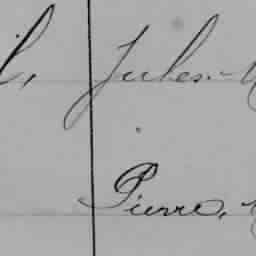 Jules.-
Pierre,